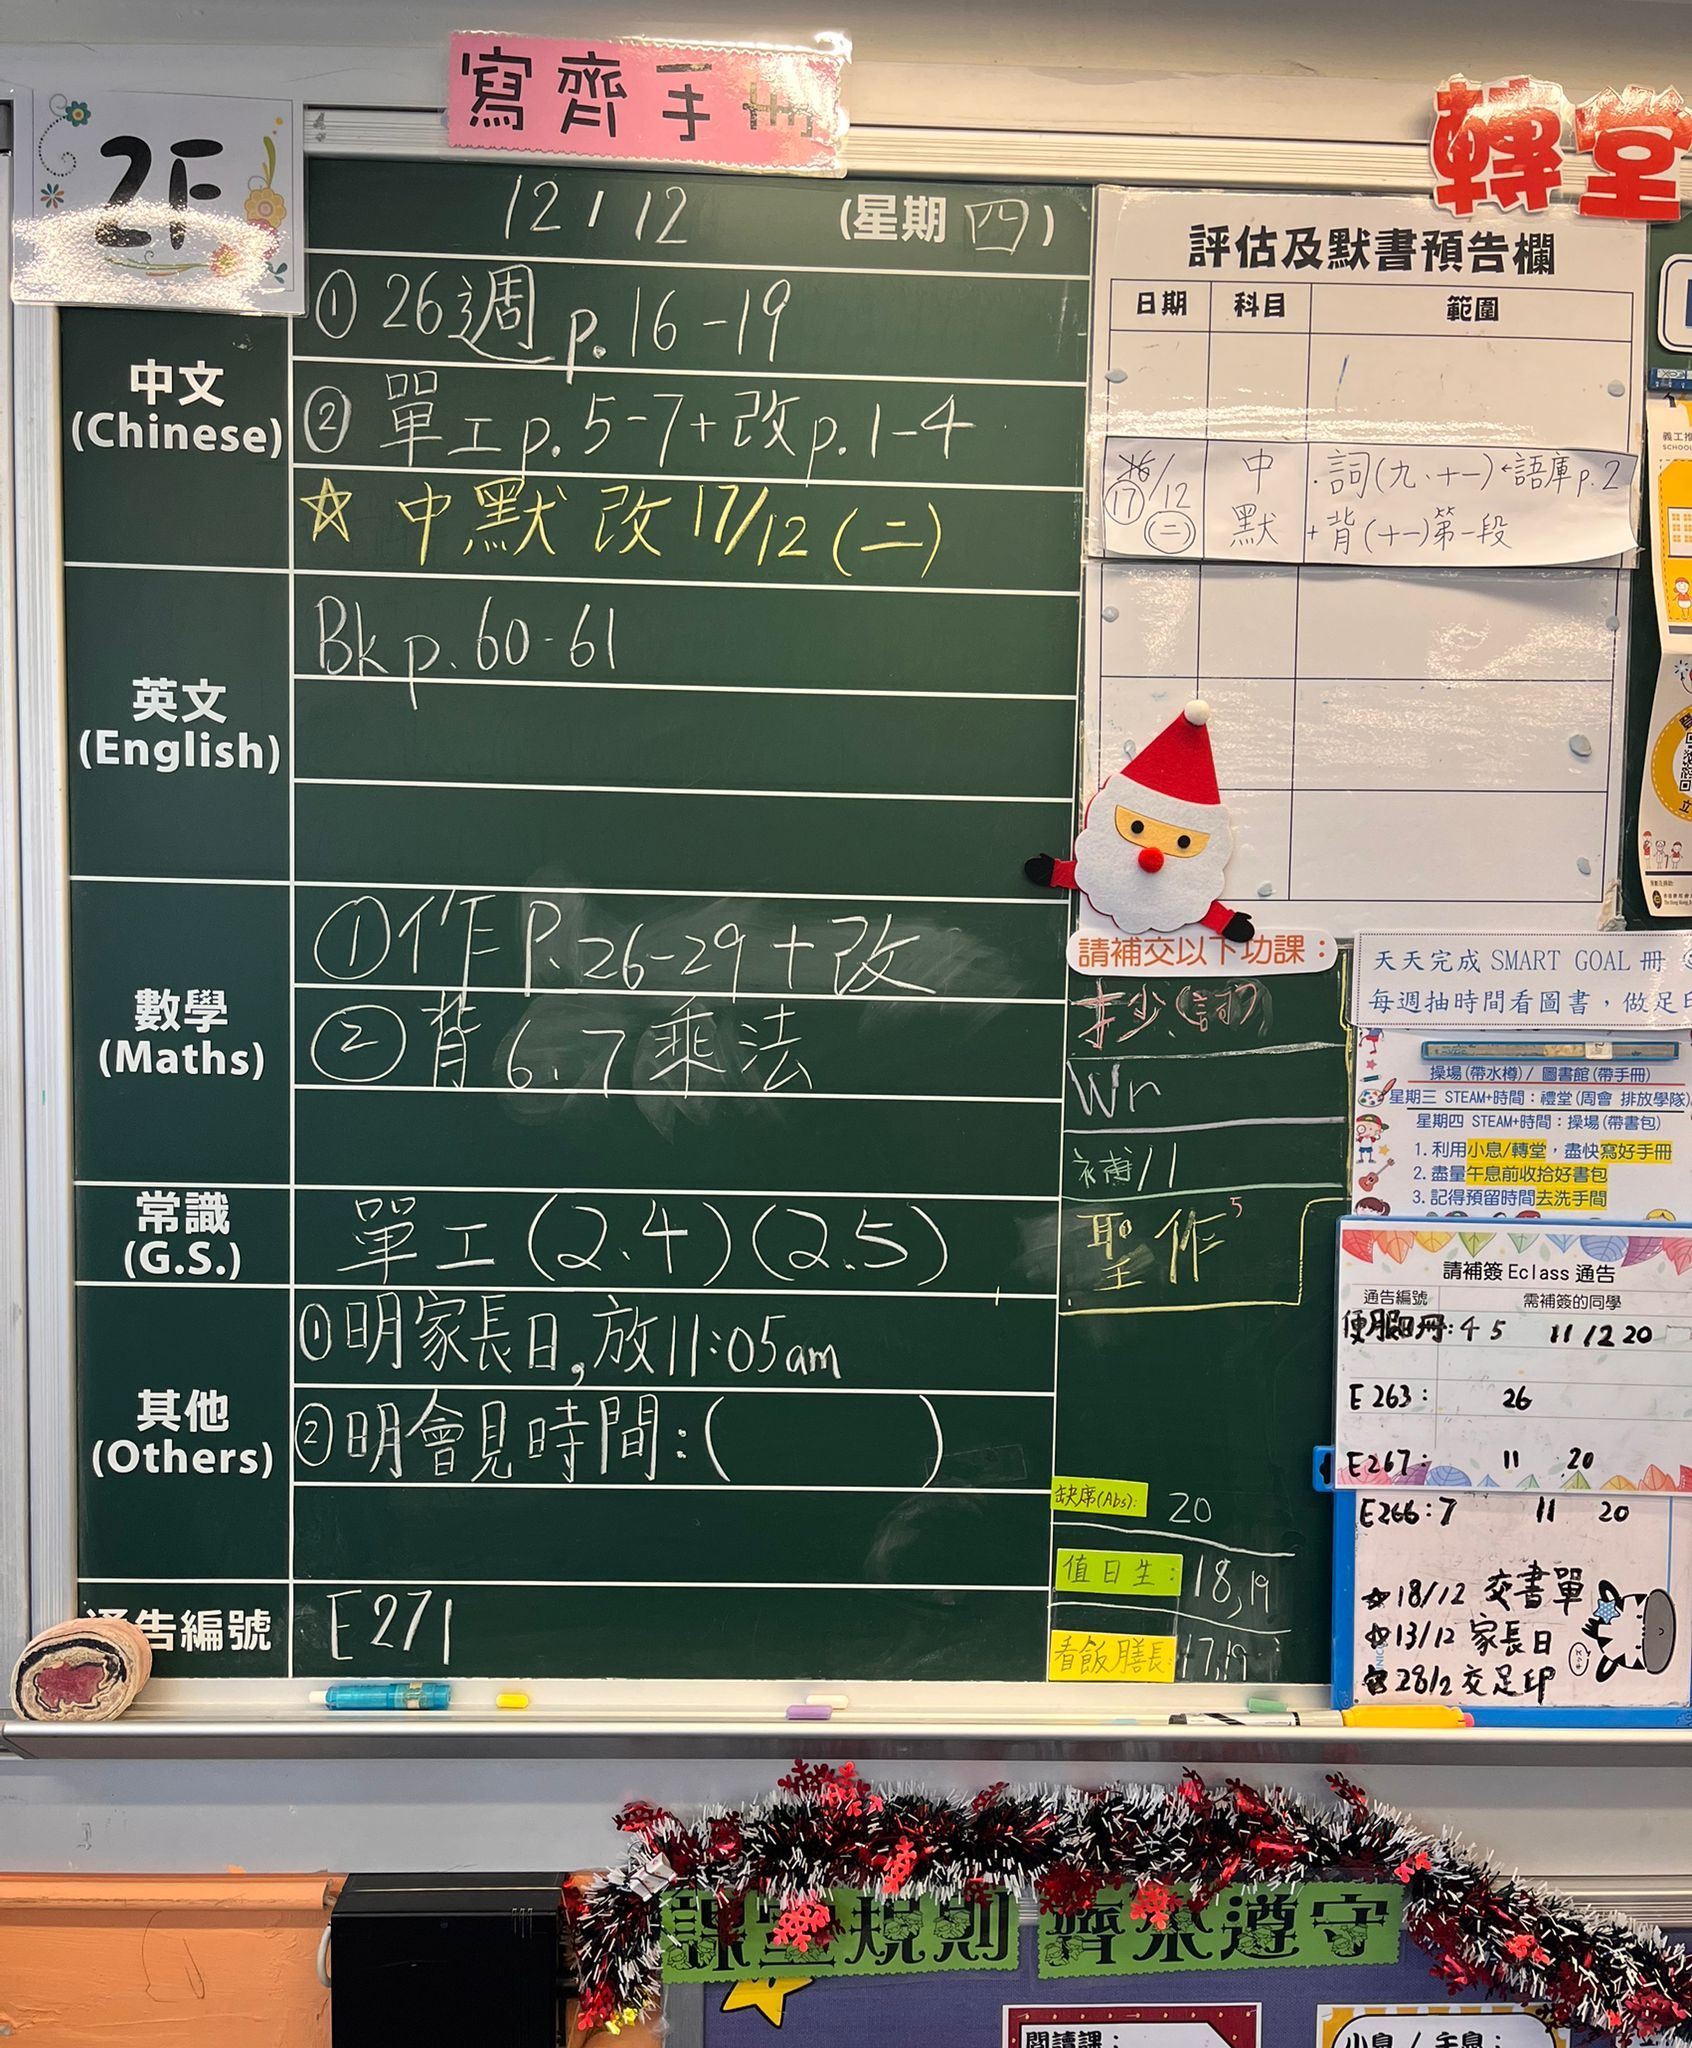 寫齊手冊
轉堂
2F
12/12 (星期四)
中文
(Chinese)
① 26週 p.16-19
② 單工p.5-7+改p.1-4
☆ 中默改17/12(二)
英文
(English)
Bk p.60-61
數學
(Maths)
①作P.26-29+改
②背6.7乘法
常識
(G.S.)
單工(2.4)(2.5)
其他
(Others)
①明家長日,放11:05am
②明會見時間:( )
告編號
E271
評估及默書預告欄
日期 科目 範圍
17/12 (二)
中默
詞(九、十一)←語庫p.2
+背(十一)第一段
請補交以下功課:
Wr
補11
聖作 5
缺席(Abs): 20
值日生: 18,19
看飯膳長: 17,19
天天完成 SMART GOAL 冊
每週抽時間看圖書,做足
操場(帶水樽)/ 圖書館(帶手冊)
星期三 STEAM+時間:禮堂(周會 排放學隊)
星期四 STEAM+時間:操場(帶書包)
1. 利用小息/轉堂,盡快寫好手冊
2. 盡量午息前收拾好書包
3. 記得預留時間去洗手間
請補簽 Eclass 通告
通告編號 需補簽的同學
便服日冊:4 5 11 12 20
E263: 26
E267: 11 20
E266:7 11 20
☆18/12 交書單
☆13/12 家長日
☆28/2 交足印
課室規則 齊來遵守
閱讀課:
小息/午息: